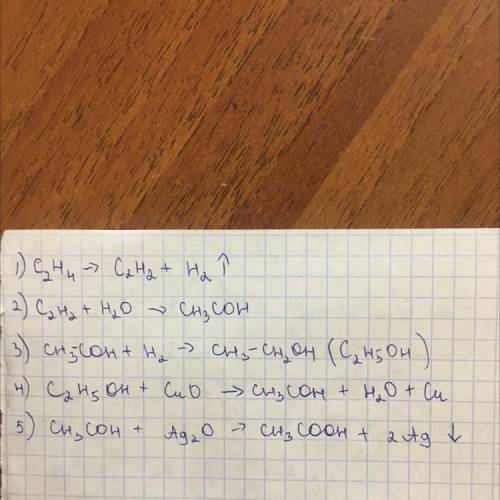 1) C₂H₄ → C₂H₂ + H₂ ↑
2) C₂H₂ + H₂O → CH₃COH
3) CH₃COH + H₂ → CH₃-CH₂OH (C₂H₅OH)
4) C₂H₅OH + CuO → CH₃COH + H₂O + Cu
5) CH₃COH + Ag₂O → CH₃COOH + 2Ag ↓